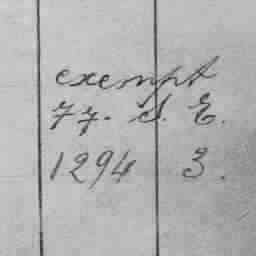 exempt
77. S. E.
1294 3.